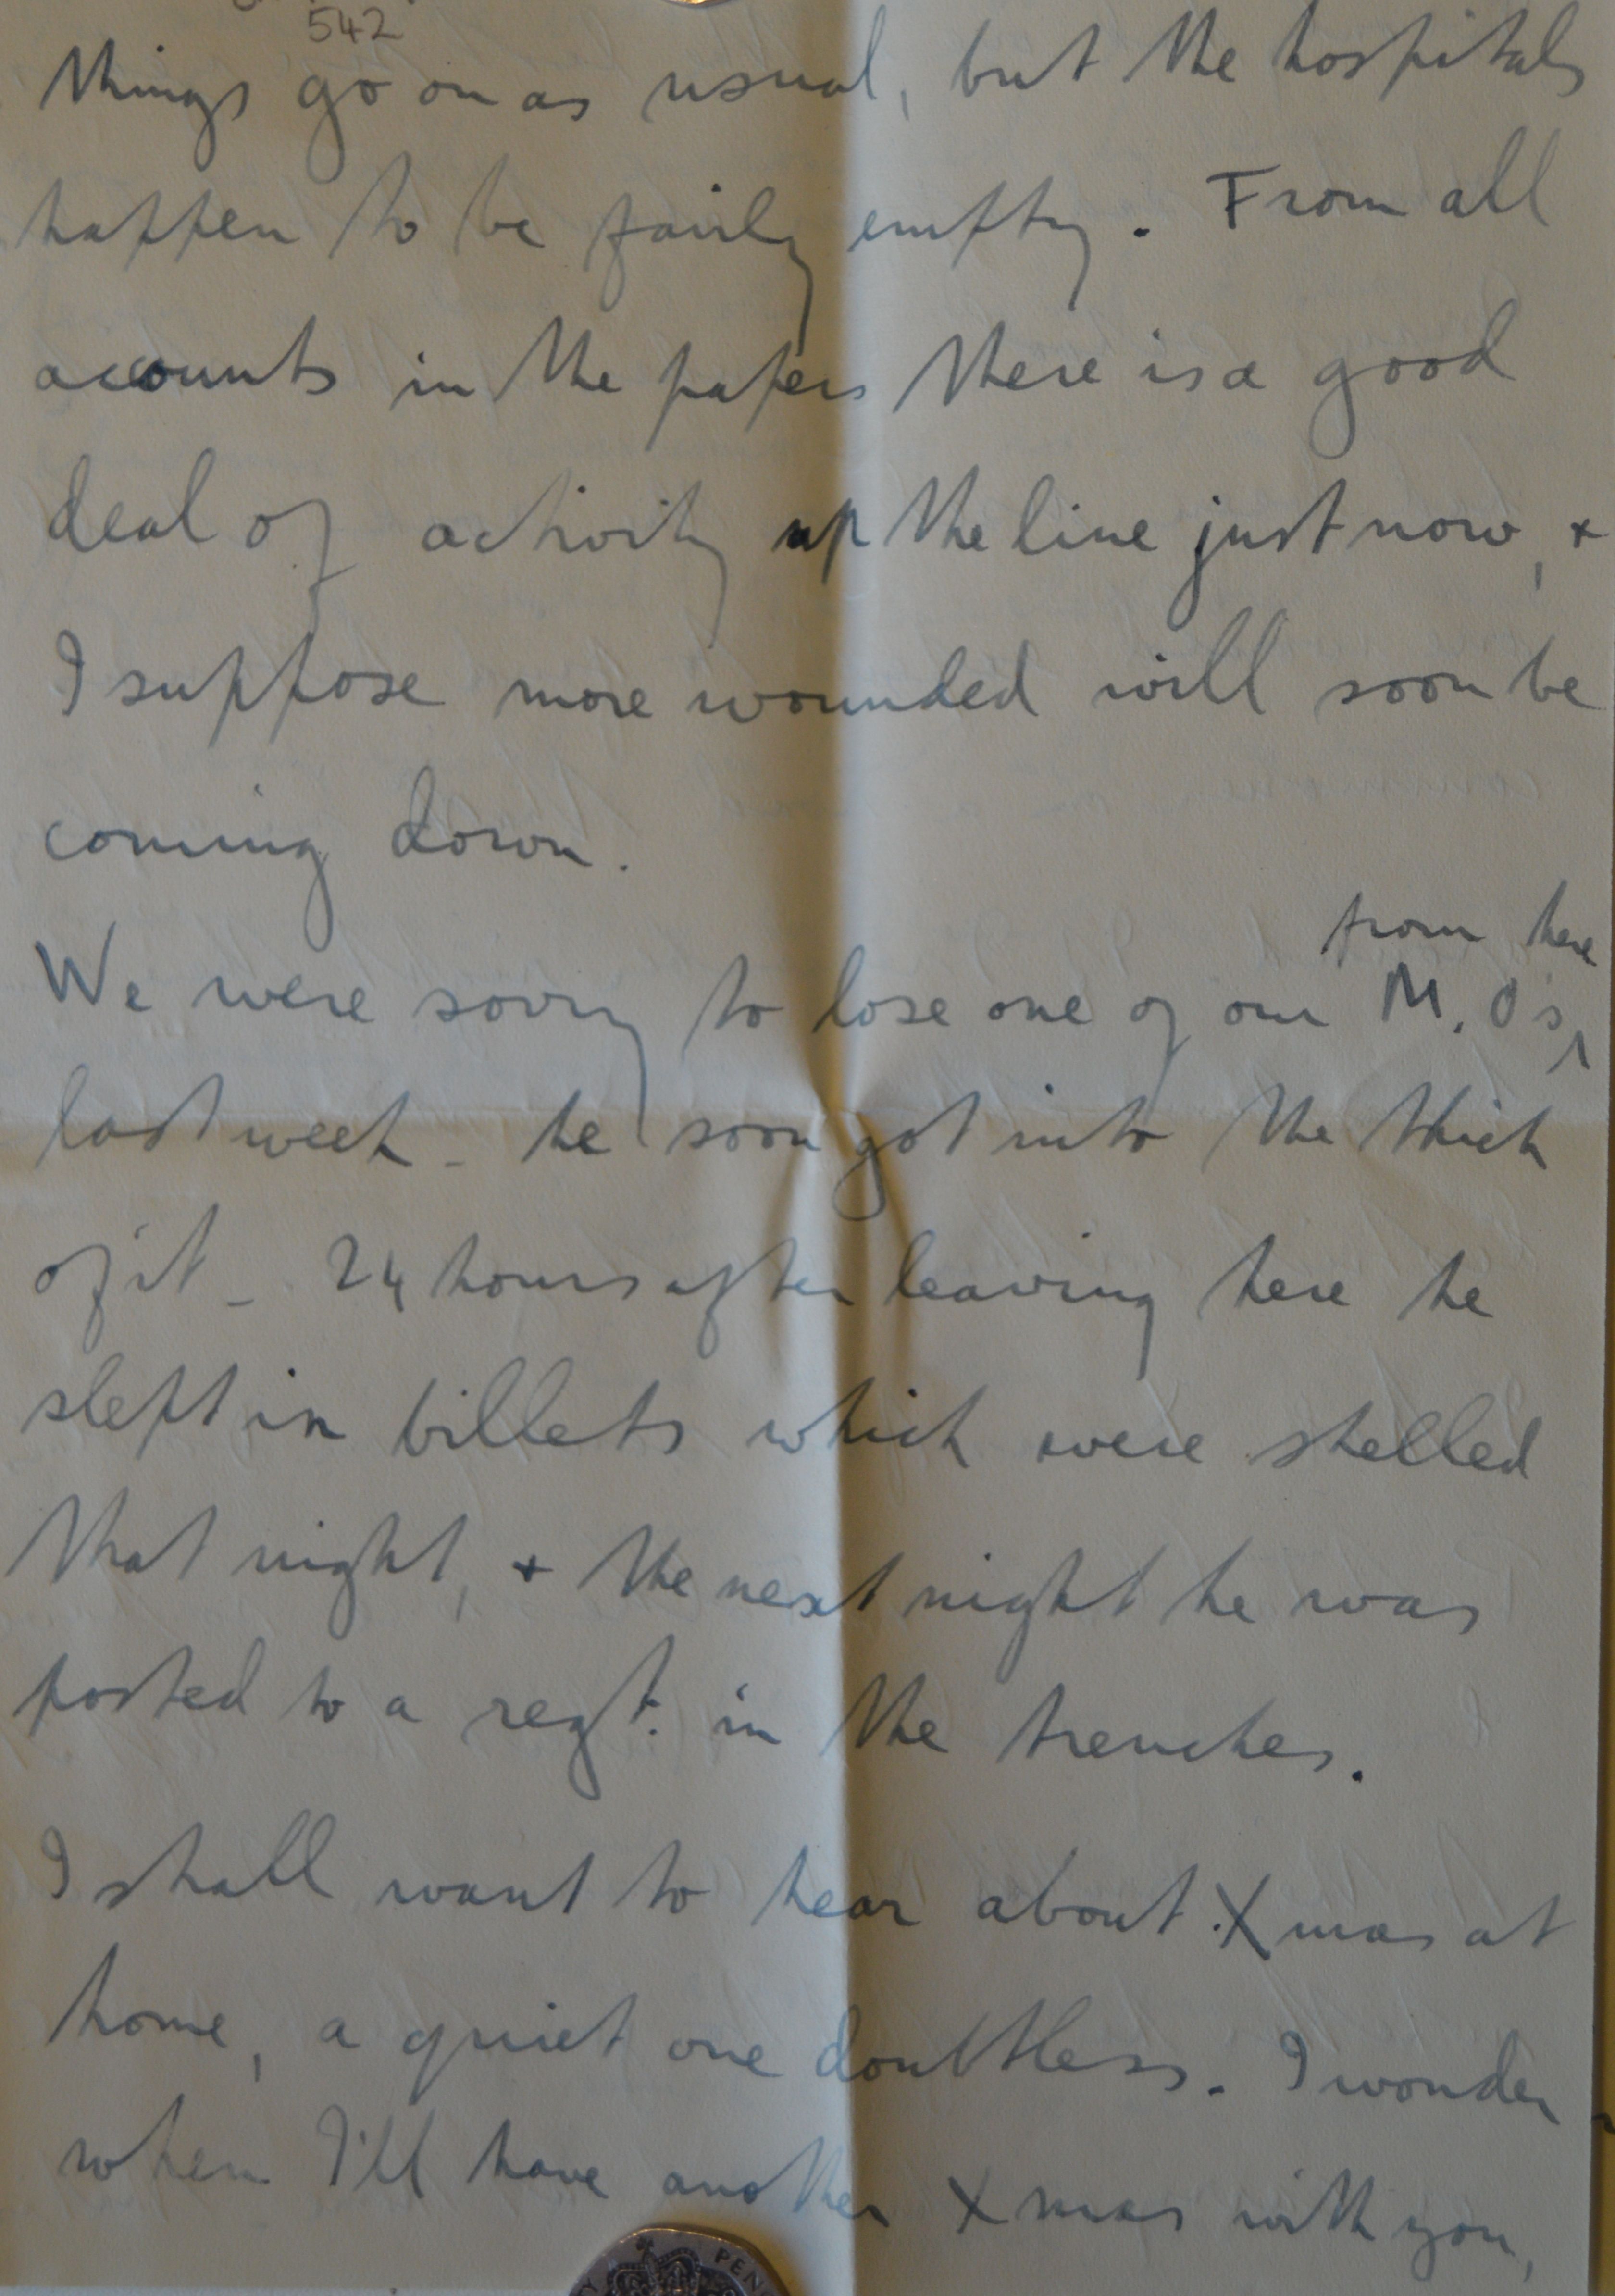 542
things go on as usual, but the hospitals
happen to be fairly empty. From all
accounts in the papers there is a good
deal of activity up the line just now, +
I suppose more wounded will soon be
coming down.
from here
We were sorry to lose one of our M.O's,
last week - he soon got into the thick
of it - 24 hours after leaving here he
slept in billets which were shelled
that night, + the next night he was
posted to a regt. in the trenches.
I shall want to hear about Xmas at
home, a quiet one doubtless. I wonder
when I'll have another Xmas with you,
PEN